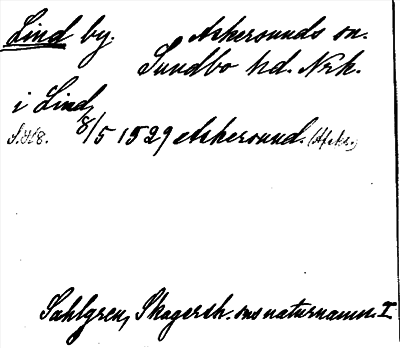 Lind by. Askersunds sn.
Sundbo hd. Nrk.
i Lind,
8/5 1529 Askersund. (Afskr.)
Sahlgren, Skagersh. sns naturnamn. I